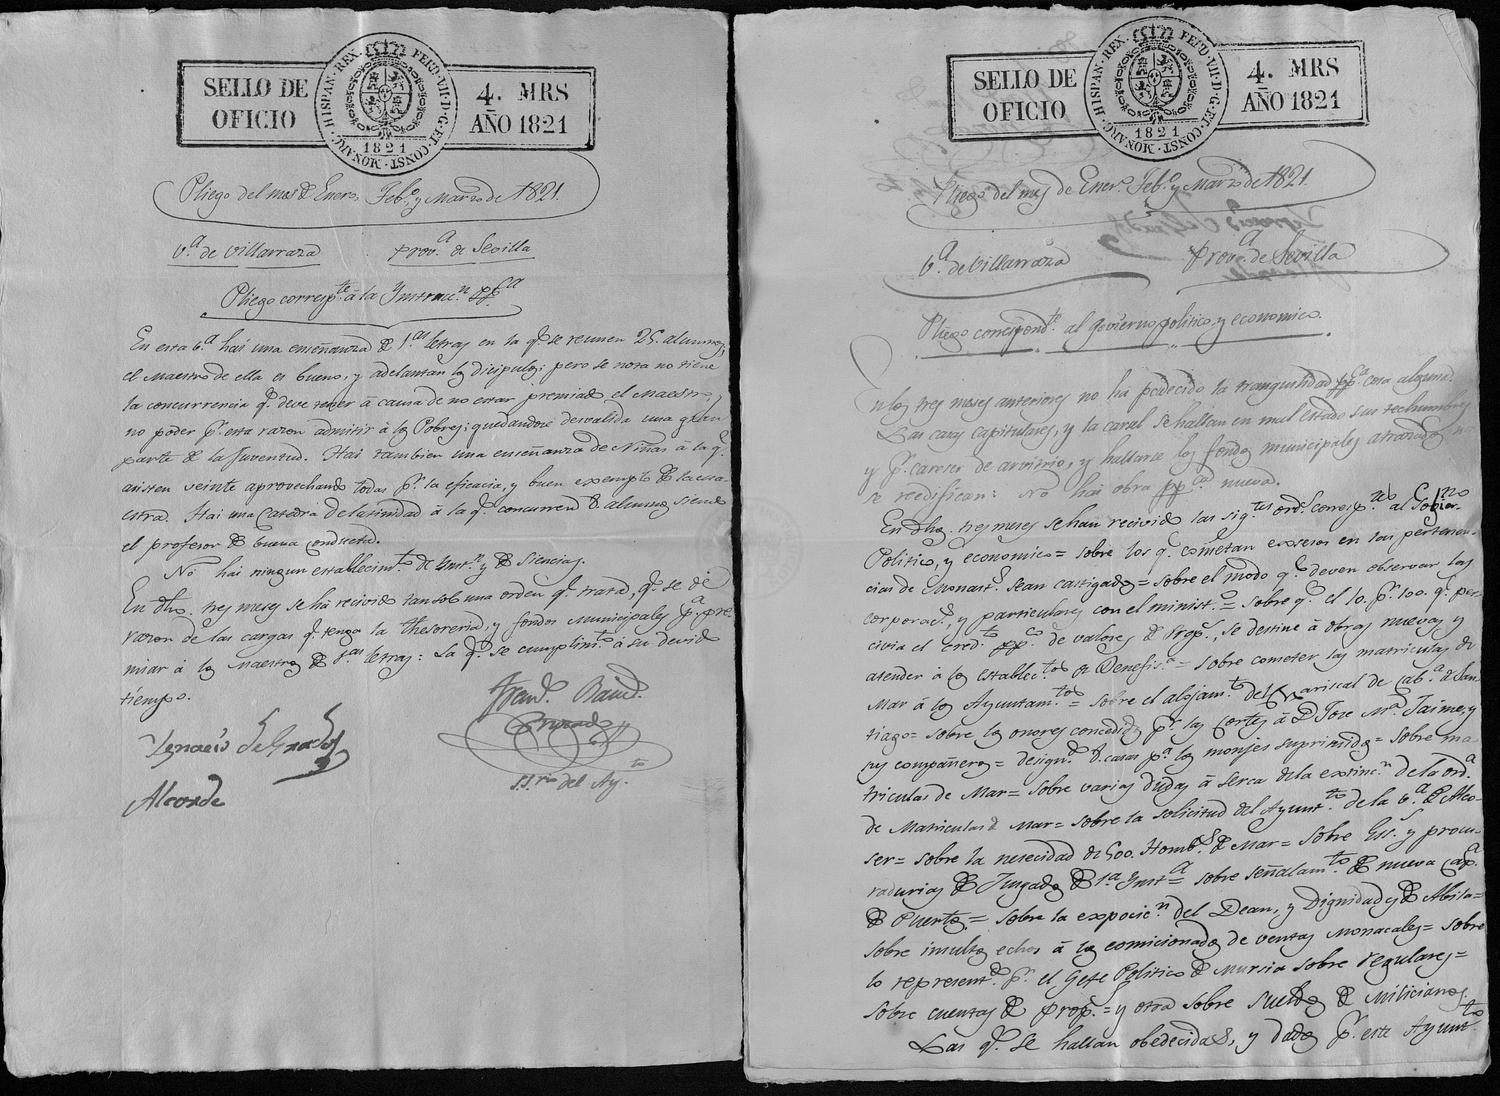 SELLO DE OFICIO
4. MRS AÑO 1821
HISPAN. REX. FERD. VII. D. G. ET. CONST. MONARC.
1821
Pliego del mes de Enero, Feb.o y Marzo de 1821.
V.a de Villarraza Prov.a de Sevilla
Pliego corresp.te á la Ynstrucc.n pp.ca
En esta v.a hai una enseñanza de 1.as letras en la q.e se reunen 25 alumnos,
el Maestro de ella es bueno, y adelantan los dicipulos; pero se nota no tiene
la concurrencia q.e deve tener á causa de no estar premiado el Maestro, y
no poder p.r esta razon admitir á los Pobres; quedandose desvalida una gran
parte de la Juventud. Hai tambien una enseñanza de Niñas á la q.e
asisten veinte aprovechando todas p.r la eficacia, y buen exemplo de la
estra. Hai una Catedra de latinidad á la q.e concurren 8. alumnos siendo
el profesor de buena conducta.
No hai ningun establecim.to de Ynst.n y de Siencias.
En dhos. tres meses se há recivido tan solo una orden q.e trata, q.e se dé
razon de las cargas q.e tenga la Thesoreria, y fondos Municipales p.a pre-
miar á los Maestros de 1.as letras: La q.e se cumplim.to á su devido
tiempo.
Ygnacio Delgado
Alcalde
S.Srio del Ay.to
SELLO DE OFICIO
4. MRS AÑO 1821
HISPAN. REX. FERD. VII. D. G. ET. CONST. MONARC.
1821
Pliego del mes de Ener.o Feb.o y Marzo de 1821.
V.a de Villarraza Prov.a de Sevilla
Pliego correspond.te al govierno politico, y economico.
En los tres meses anteriores no há padecido la tranquilidad pp.ca cosa alguna.
Las casas capitulares, y la carcel se hallan en mal estado sus techumbres
y p.r careser de arvitrios, y hallarse los fondos municipales atrazados no
se reedifican: No hai obra pp.ca nueva.
En dhos. tres meses se han recivido las sig.tes ord.s corresp.tes al Govierno
Politico, y economico = sobre los q.e cometan exsesos en las pertenen-
cias de Monast.s sean castigados = sobre el modo q.e deven observar las
corporac.s, y particulares con el minist.o = sobre q.e el 10. p.r 100. q.e per-
civia el cred.to pp.co de valores de Prop.s, se destine á obras nuevas y
atender á los establec.tos de Benefis.a = sobre cometer las matriculas de
Mar á los Ayuntam.tos = sobre el alojam.to del Mariscal de Cab.a de San
tiago = sobre los onores concedidos p.r las Cortes á D. Jose M.a Jaime, y
sus compañeros = design.n de casas p.a los monjes suprimidos = sobre ma-
triculas de Mar = sobre varias dudas á serca de la extinc.n de la ord.a
de Matriculas de Mar = sobre la solicitud del Ayunt.to de la v.a de Alco-
ser = sobre la nesecidad de 500. Homb.s de Mar = sobre Ess.s y procu-
radurias de Jusgados de 1.a Ynst.a = sobre señalam.to de nueva Cap.l
de Puertos = sobre la exposic.n del Dean, y Dignidades de Abila =
sobre insultos echos á los comicionados de ventas Monacales = sobre
lo represent.do p.r el Gefe Politico de Mursia sobre regulares =
sobre cuentas de prop.s = y otra sobre sueldos de Milicianos.
Las q.e se hallan obedecidas, y dados p.r este Ayunt.to